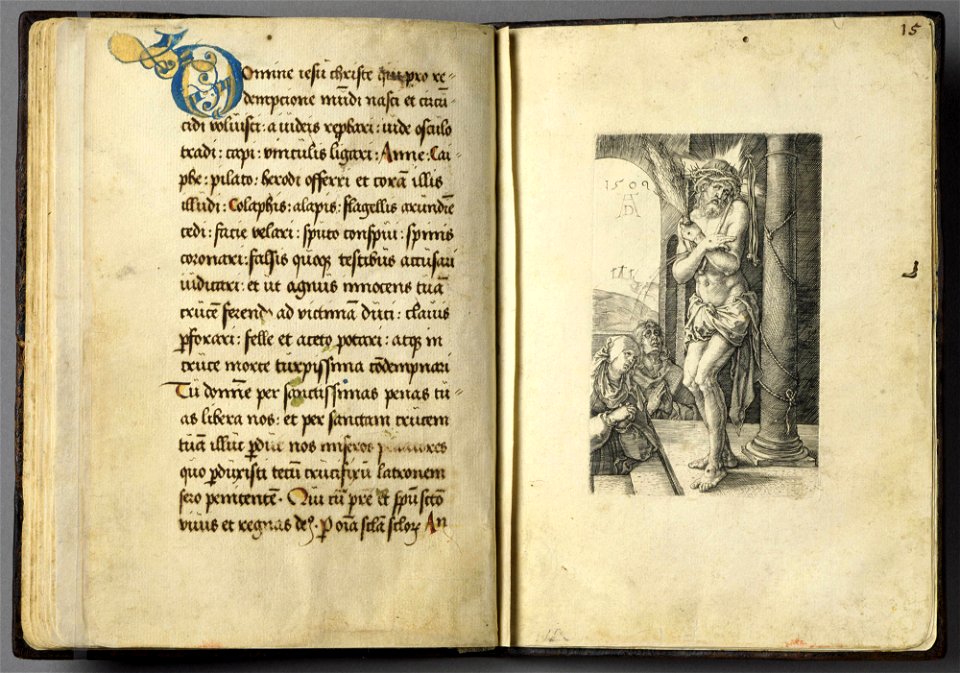 Domine iesū christe qui pro re-
dempcione mūdi nasci et circū-
cidi voluisti : a iudeis reprbari : iude osculo
tradi : capi : vinculis ligari : Anne : Cai-
phe : pilato : herodi offerri et corā illis
illudi : Colaphis : alapis : flagellis arūndīe
cedi : facie velari : sputo conspui : spinis
coronari : falsis quoq; testibus accusari
iudicari : et ut agnus innocens tuā
crucē ferend ad victimā duci : clauis
pforari : felle et aceto potari : atq; in
cruce morte turpissima cōdempnari
Tu domīe per sanctissimas penas tu-
as libera nos : et per sanctam crucem
tuā illuc pduc nos miseros
quo pduxisti tecū crucifixū latronem
sero penitentē. Qui cū pre et spū sctō
viuis et regnas de9. P oīa scla sclor An
15
1509
AD